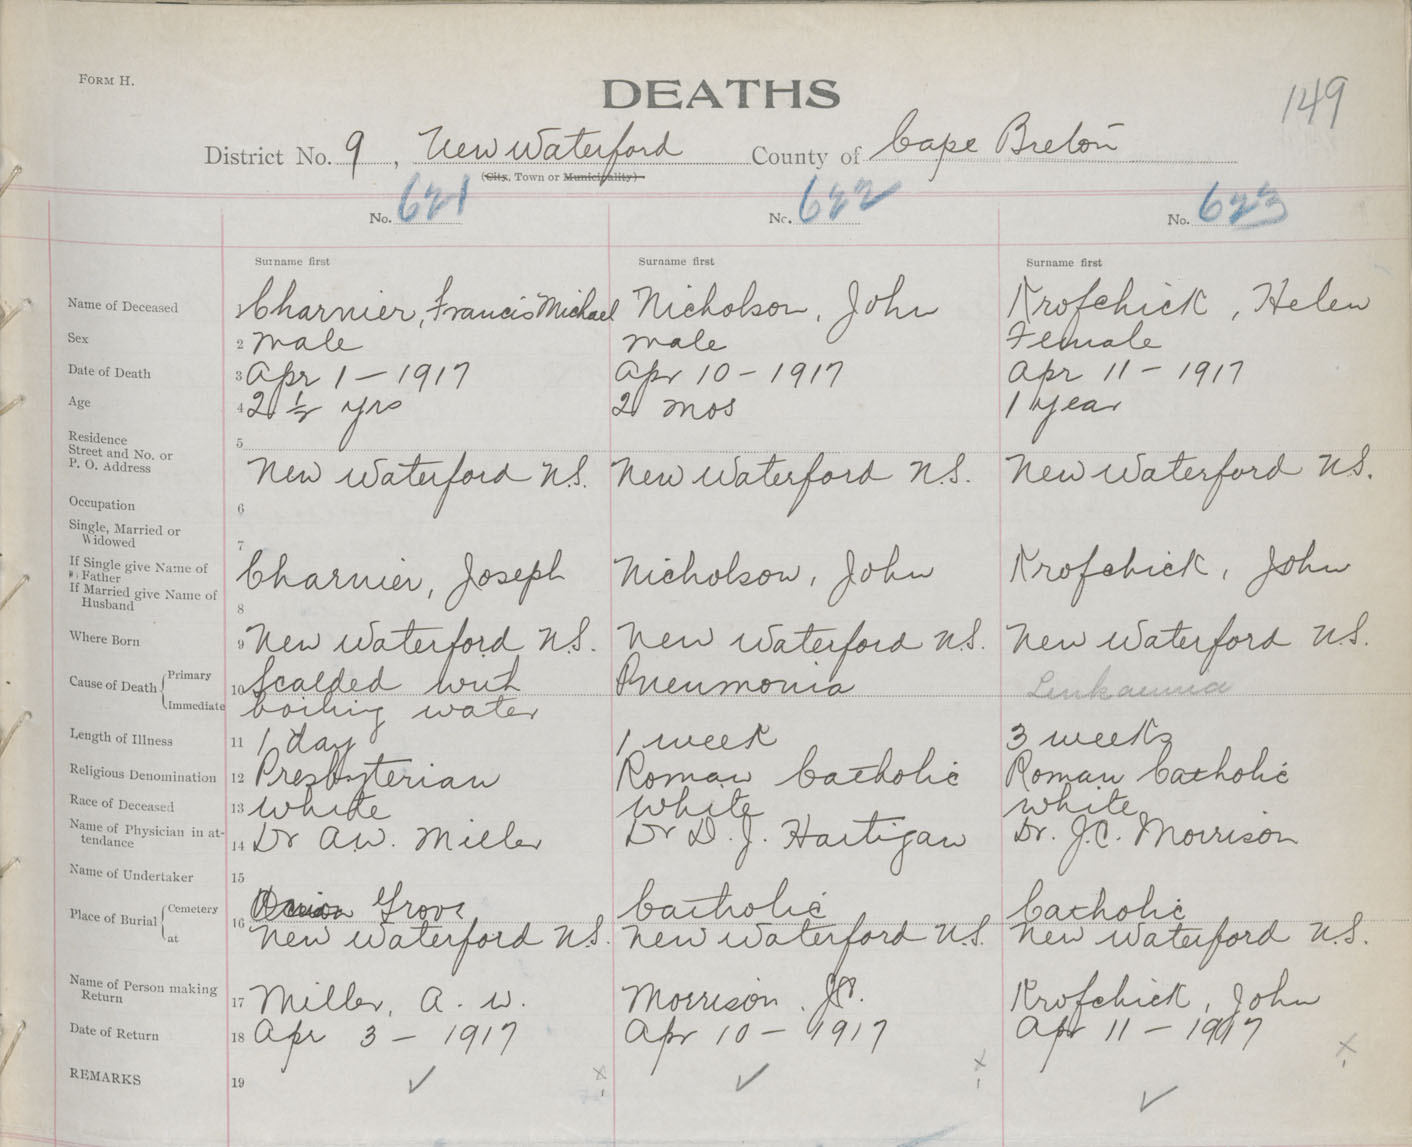 FORM H.
DEATHS
149
District No. 9, New Waterford County of Cape Breton
(City, Town or Municipality)
No. 621 No. 622 No. 623
Surname first Surname first Surname first
Name of Deceased 1 Charnier, Francis Michael Nicholson, John Krofchick, Helen
Sex 2 male male Female
Date of Death 3 Apr 1 - 1917 Apr 10 - 1917 Apr 11 - 1917
Age 4 2 1/2 yrs 2 mos 1 year
Residence 5
Street and No. or
P. O. Address New Waterford N.S. New Waterford N.S. New Waterford N.S.
Occupation 6
Single, Married or
Widowed 7
If Single give Name of
Father Charnier, Joseph Nicholson, John Krofchick, John
If Married give Name of
Husband 8
Where Born 9 New Waterford N.S. New Waterford N.S. New Waterford N.S.
Cause of Death { Primary 10 Scalded with Pneumonia
Immediate boiling water
Length of Illness 11 1 day 1 week 3 weeks
Religious Denomination 12 Presbyterian Roman Catholic Roman Catholic
Race of Deceased 13 white white white
Name of Physician in at-
tendance 14 Dr A.W. Miller Dr D. J. Hartigan Dr. J.C. Morrison
Name of Undertaker 15
Place of Burial { Cemetery 16 Grove Catholic Catholic
at New Waterford N.S. New Waterford N.S. New Waterford N.S.
Name of Person making
Return 17 Miller, A. W. Morrison, J.C. Krofchick, John
Date of Return 18 Apr 3 - 1917 Apr 10 - 1917 Apr 11 - 1917
REMARKS 19